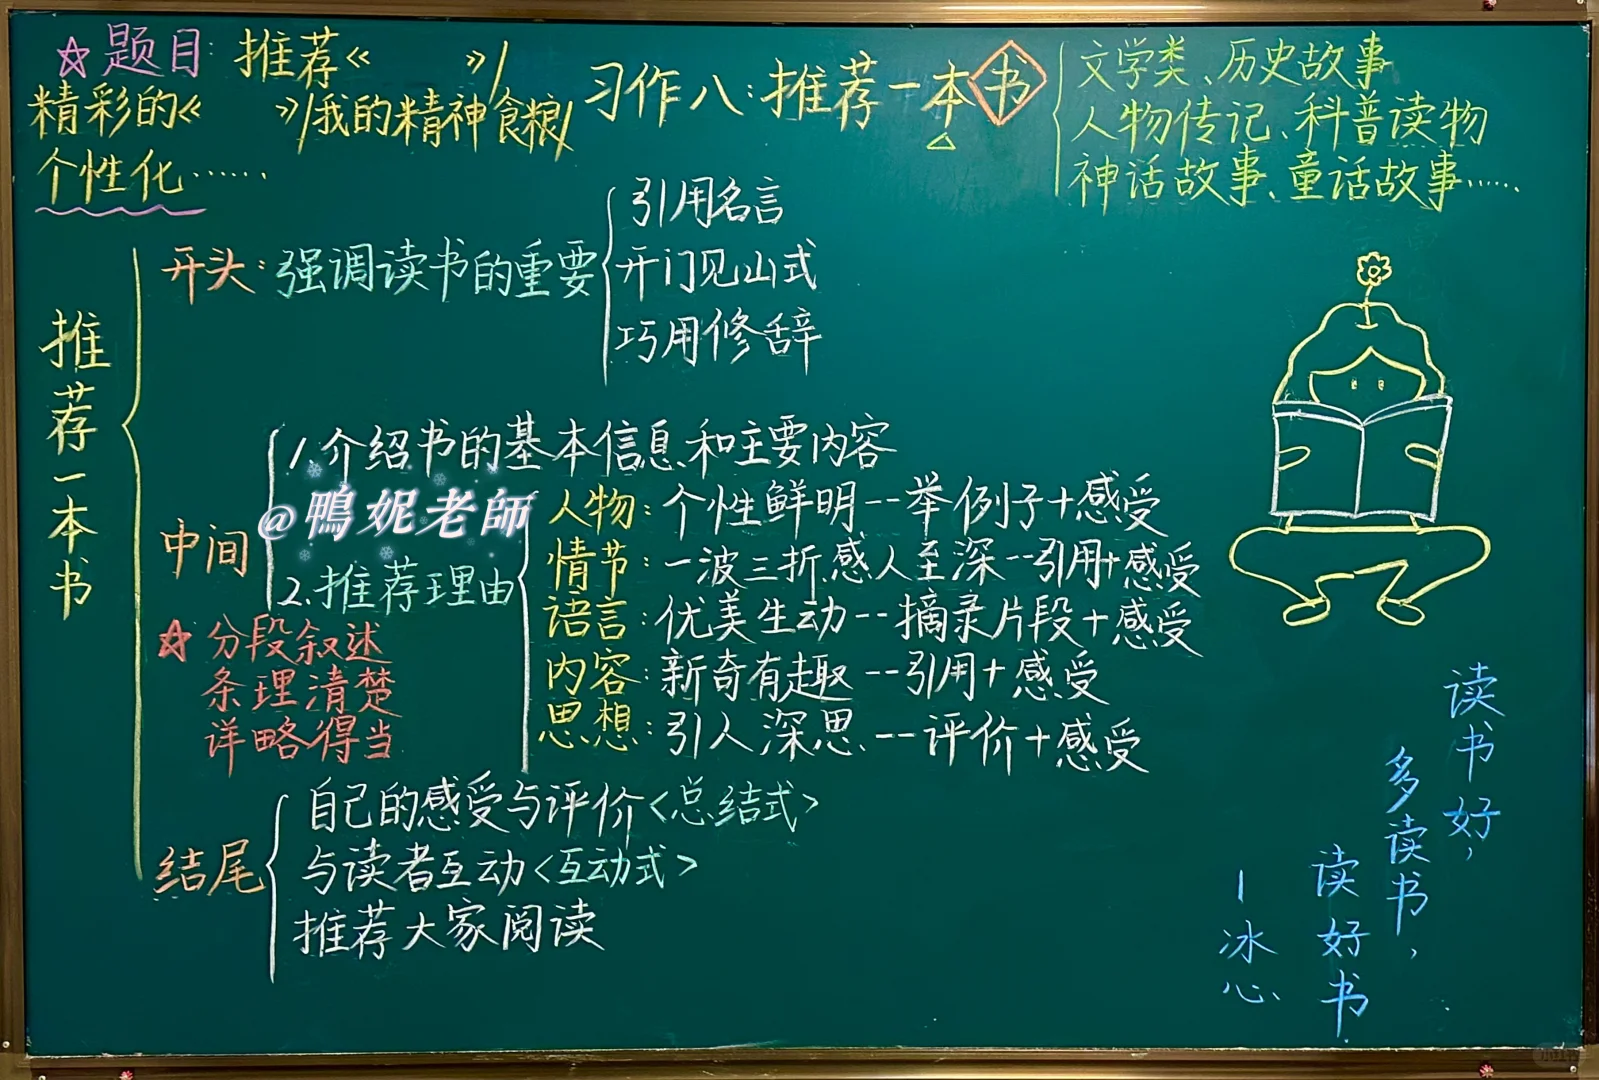 ☆题目:推荐《 》/
精彩的《 》/我的精神食粮/
个性化……
习作八:推荐一本书
文学类、历史故事
人物传记、科普读物
神话故事、童话故事……
推荐一本书
开头:强调读书的重要
引用名言
开门见山式
巧用修辞
中间
1.介绍书的基本信息和主要内容
@鴨妮老師
2.推荐理由
人物:个性鲜明--举例子+感受
情节:一波三折、感人至深--引用+感受
语言:优美生动--摘录片段+感受
内容:新奇有趣--引用+感受
思想:引人深思--评价+感受
☆分段叙述
条理清楚
详略得当
结尾
自己的感受与评价<总结式>
与读者互动<互动式>
推荐大家阅读
读书好,
多读书,
读好书
—冰心
小红书